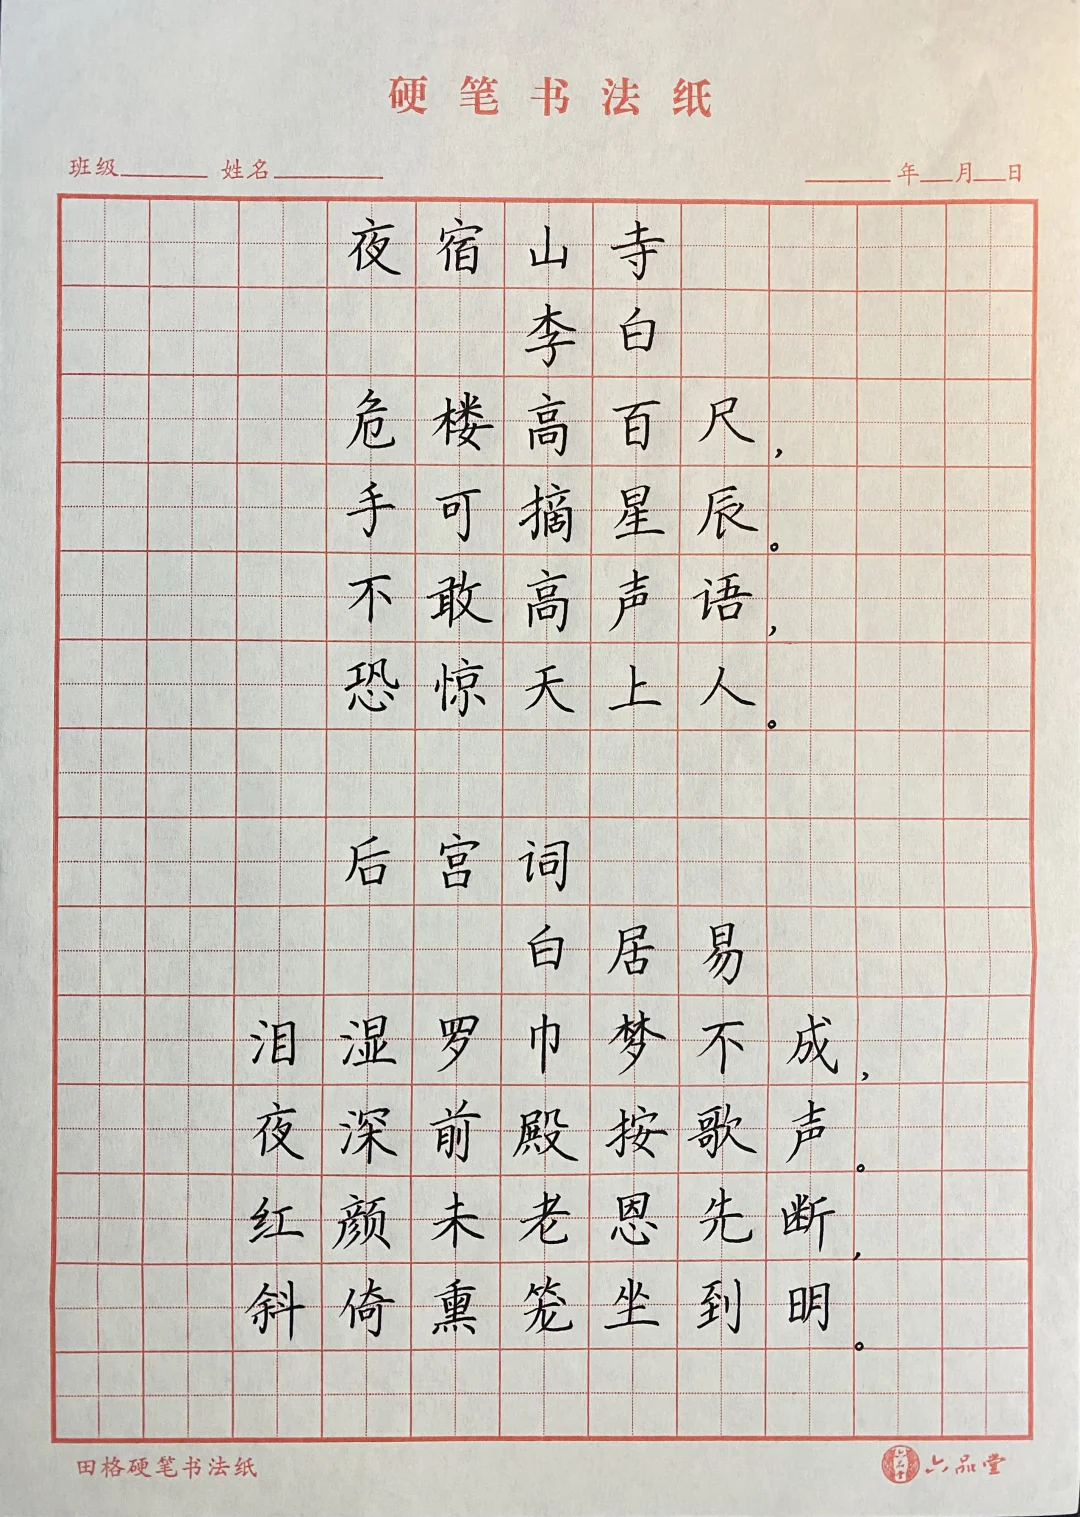 硬笔书法纸
班级 姓名 年 月 日
夜宿山寺
李白
危楼高百尺，
手可摘星辰。
不敢高声语，
恐惊天上人。
后宫词
白居易
泪湿罗巾梦不成，
夜深前殿按歌声。
红颜未老恩先断，
斜倚熏笼坐到明。
田格硬笔书法纸
六品堂 六品堂